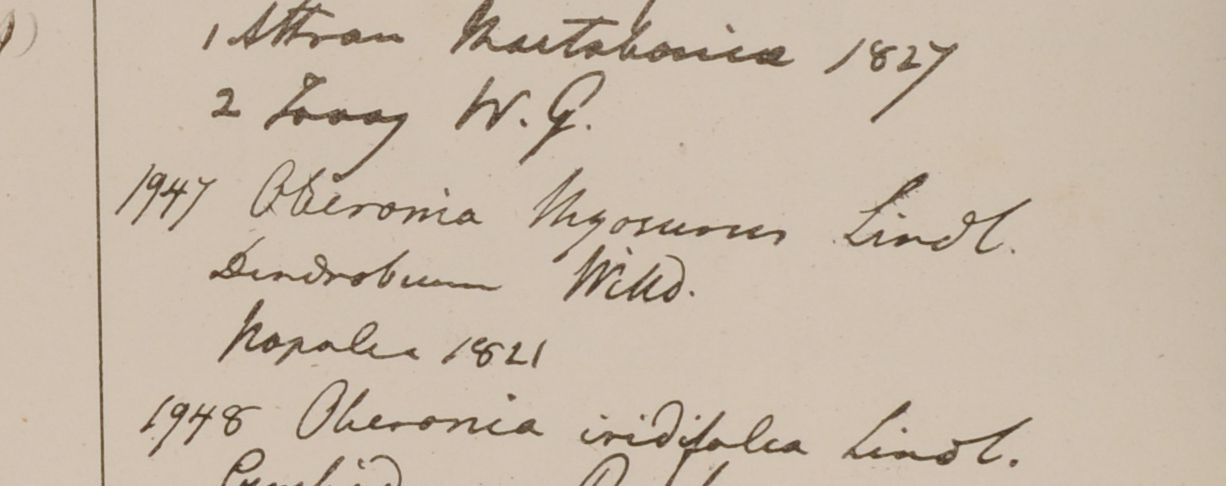 1 Attran Martabania 1827
2 Tavoy W. G.
1947 Oberonia Myosurus Lindl.
Dendrobium Willd.
Napalia 1821
1948 Oberonia iridifolia Lindl.